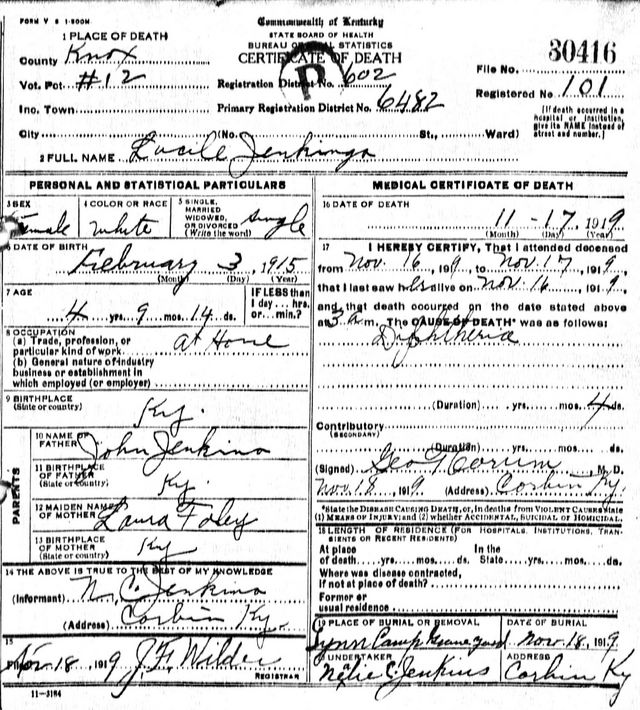 FORM V S 1-500M
Commonwealth of Kentucky
STATE BOARD OF HEALTH
BUREAU OF VITAL STATISTICS
CERTIFICATE OF DEATH
1 PLACE OF DEATH
County Knox
Vot. Pct. #12
Inc. Town
City (No. St., Ward)
Registration District No. 602
Primary Registration District No. 6482
P
30416
File No.
Registered No. 101
[If death occurred in a hospital or institution, give its NAME instead of street and number.]
2 FULL NAME Lucile Jenkings
PERSONAL AND STATISTICAL PARTICULARS
3 SEX Female
4 COLOR OR RACE white
5 SINGLE, MARRIED WIDOWED, OR DIVORCED (Write the word) single
6 DATE OF BIRTH
February 3, 1915
(Month) (Day) (Year)
7 AGE
4 yrs. 9 mos. 14 ds.
IF LESS than 1 day... hrs. or... min.?
8 OCCUPATION
(a) Trade, profession, or particular kind of work at Home
(b) General nature of industry business or establishment in which employed (or employer)
9 BIRTHPLACE
(State or country) Ky.
PARENTS
10 NAME OF FATHER John Jenkins
11 BIRTHPLACE OF FATHER (State or country) Ky.
12 MAIDEN NAME OF MOTHER Laura Foley
13 BIRTHPLACE OF MOTHER (State or country) Ky
14 THE ABOVE IS TRUE TO THE BEST OF MY KNOWLEDGE
(Informant) N. C. Jenkins
(Address) Corbin Ky.
15
Filed Nov 18, 1919 J. F. Wilder
REGISTRAR
11-3184
MEDICAL CERTIFICATE OF DEATH
16 DATE OF DEATH
11 - 17, 1919
(Month) (Day) (Year)
17 I HEREBY CERTIFY, That I attended deceased
from Nov. 16, 1919, to Nov. 17, 1919,
that I last saw her alive on Nov. 16, 1919,
and that death occurred on the date stated above
at 3 a m. The CAUSE OF DEATH* was as follows:
Diphtheria
(Duration) yrs. mos. 4 ds.
Contributory
(SECONDARY)
(Duration) yrs. mos. ds.
(Signed) Geo T Corum, M.D.
Nov. 18, 1919. (Address) Corbin Ky.
*State the DISEASE CAUSING DEATH, or, in deaths from VIOLENT CAUSES state (1) MEANS OF INJURY; and (2) whether ACCIDENTAL, SUICIDAL OR HOMICIDAL.
18 LENGTH OF RESIDENCE (FOR HOSPITALS, INSTITUTIONS, TRANSIENTS OR RECENT RESIDENTS)
At place of death yrs. mos. ds. In the State yrs. mos. ds.
Where was disease contracted, if not at place of death?
Former or usual residence
19 PLACE OF BURIAL OR REMOVAL
Lynn Camp Grave yard
DATE OF BURIAL
Nov. 18, 1919
20 UNDERTAKER
C. Jenkins
ADDRESS
Corbin Ky